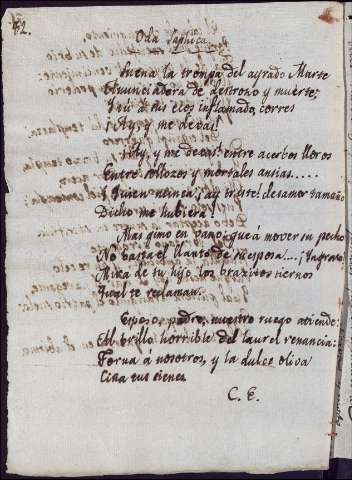 42.
Oda Saphica.
Suena la trompa del ayrado Marte
Anunciadora de destrozo y muerte;
I tú á sus ecos inflamado corres
¡Ay, y me dexas!
¡Ay, y me dexas! entre acerbos lloros
Entre sollozos y mortales ansias.....
¡Quien nunca ¡ay triste! desamor tamaño
Dicho me hubiera!
Mas gimo en vano: que á mover su pecho
No basta el llanto de su esposa... ¡Ingrato!
Mira de tu hijo los brazitos tiernos
Qual te reclaman.
Esposo, padre, nuestro ruego atiende:
El brillo horrible del laurel renuncia:
Torna á nosotros, y la dulce oliva
Ciña tus sienes.
C. E.